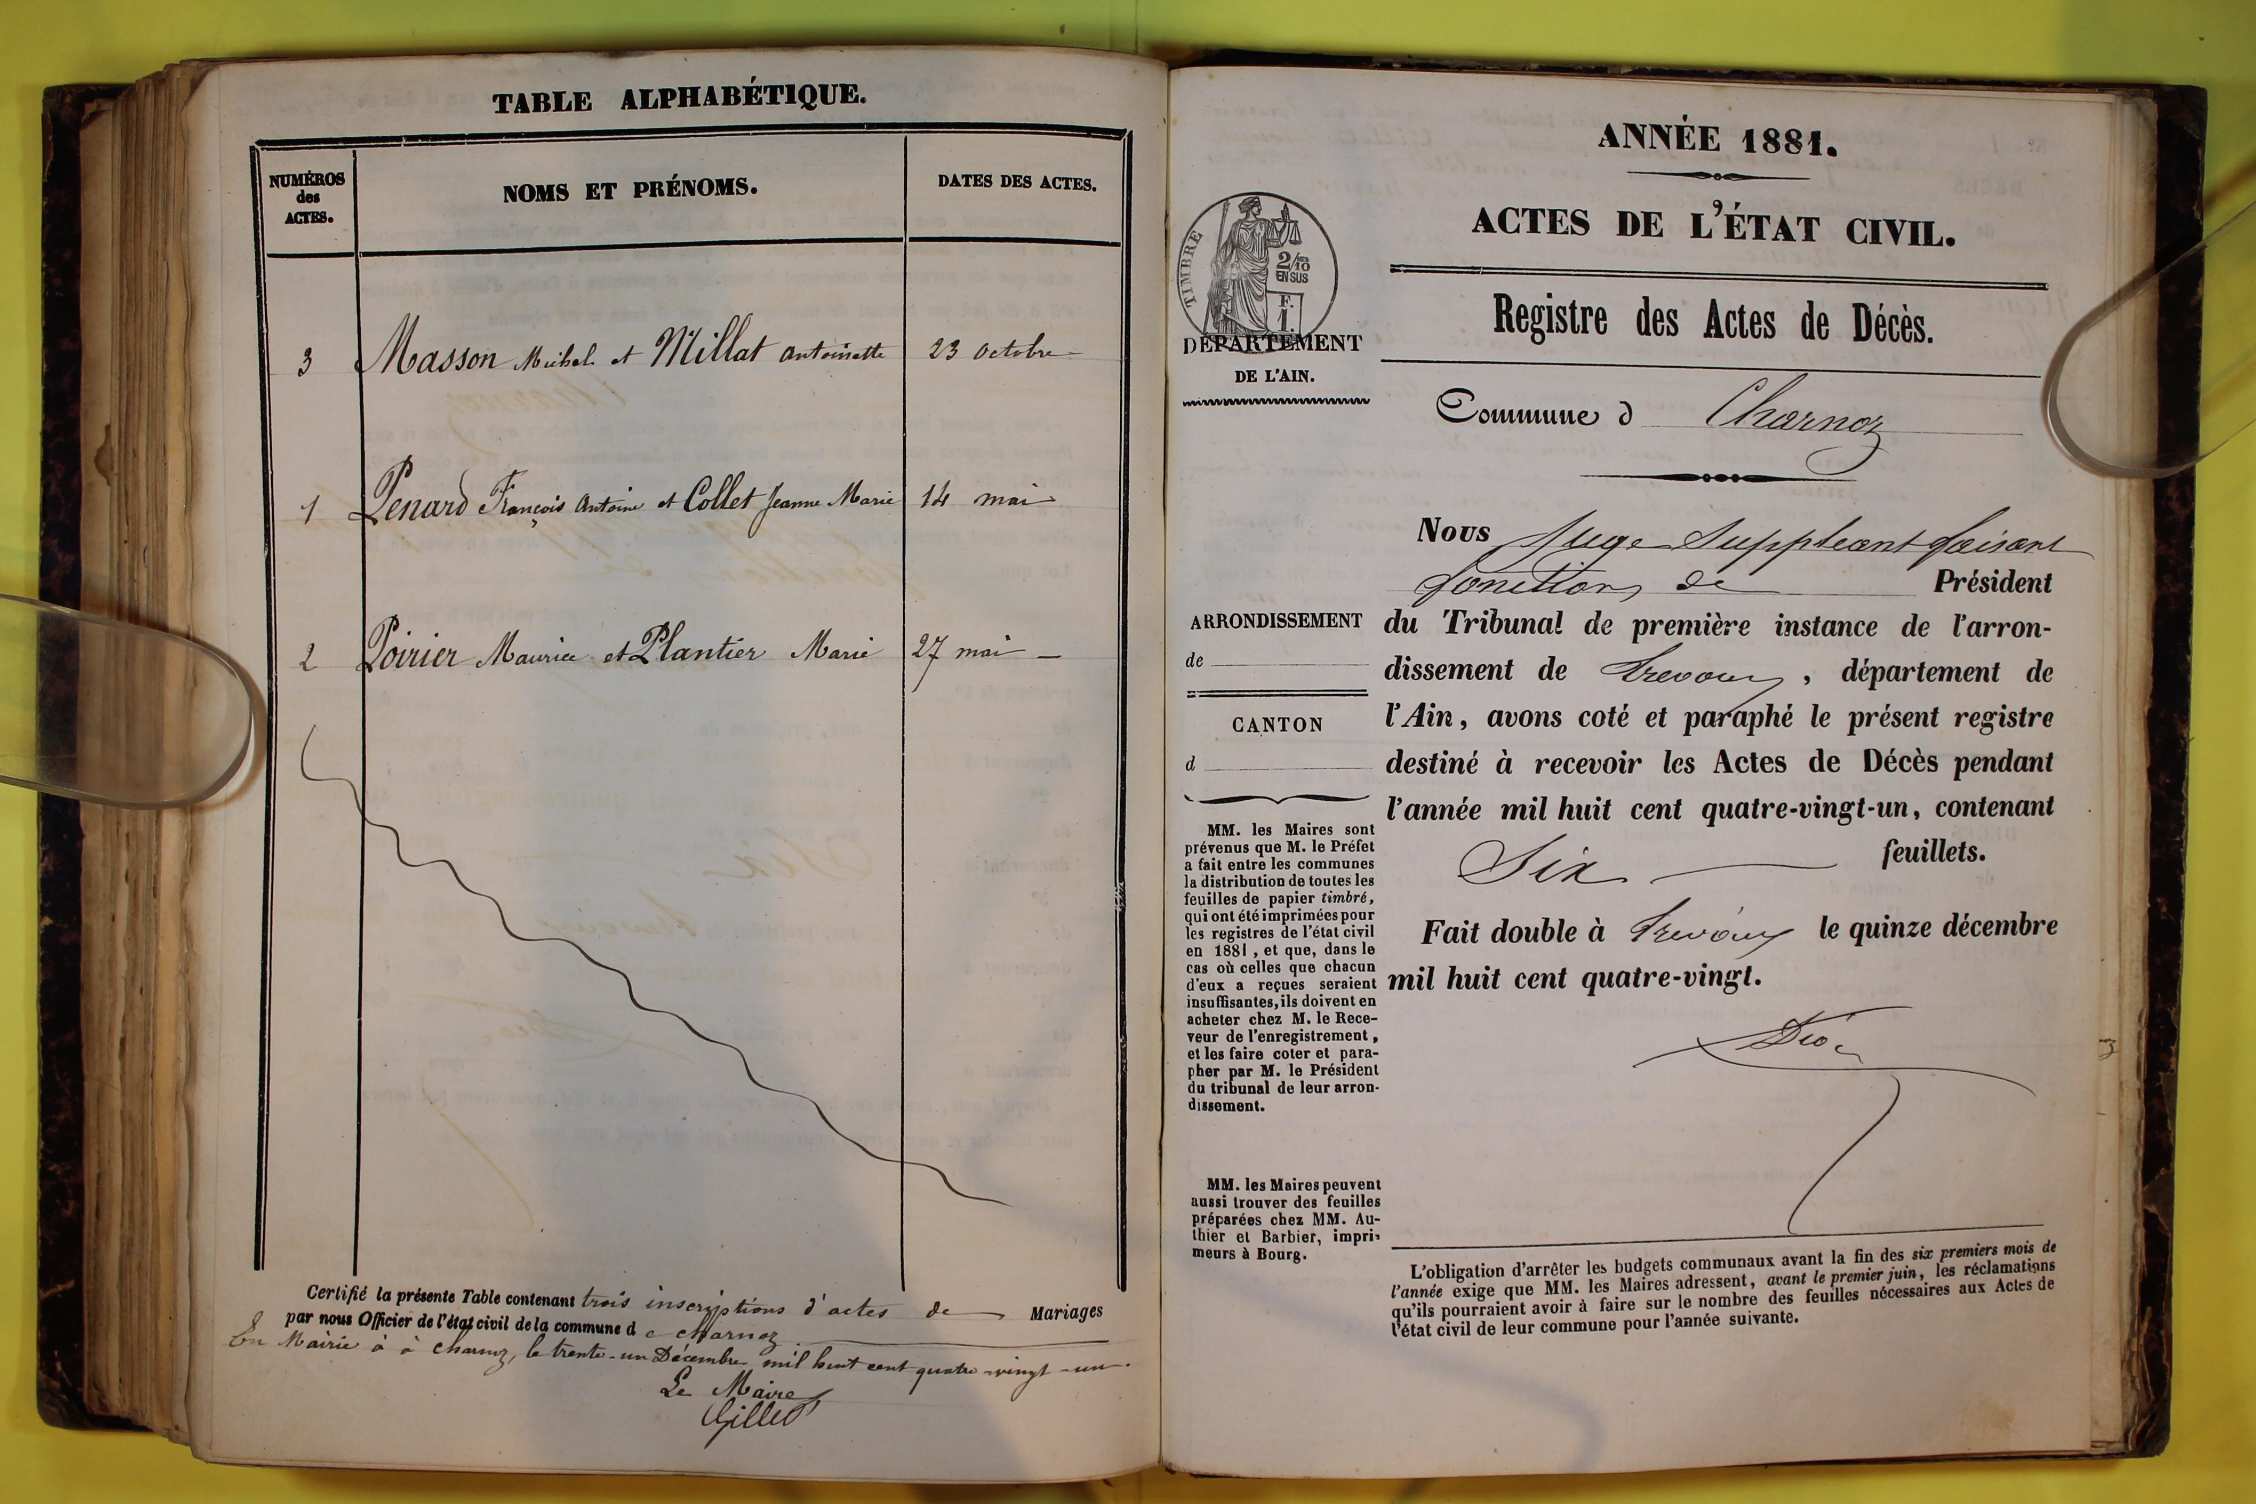 TABLE ALPHABÉTIQUE.
NUMÉROS
des
ACTES.
NOMS ET PRÉNOMS.
DATES DES ACTES.
3 Masson Michel et Millat Antoinette 23 octobre
1 Penard François Antoine et Collet Jeanne Marie 14 mai
2 Poirier Maurice et Plantier Marie 27 mai
Certifié la présente Table contenant trois inscriptions d'actes de Mariages
par nous Officier de l'état civil de la commune d e charnoz
En Mairie à à charnoz, le trente-un Décembre mil huit cent quatre-vingt-un.
Le Maire
Gillet
ANNÉE 1881.
ACTES DE L'ÉTAT CIVIL.
TIMBRE
2/10
EN SUS
F.
1.
DÉPARTEMENT
DE L'AIN.
Registre des Actes de Décès.
Commune d Charnoz
Nous Juge Suppléant faisant
fonctions de Président
du Tribunal de première instance de l'arron-
dissement de Trevoux, département de
l'Ain, avons coté et paraphé le présent registre
destiné à recevoir les Actes de Décès pendant
l'année mil huit cent quatre-vingt-un, contenant
Six feuillets.
Fait double à Trevoux le quinze décembre
mil huit cent quatre-vingt.
ARRONDISSEMENT
de
CANTON
d
MM. les Maires sont
prévenus que M. le Préfet
a fait entre les communes
la distribution de toutes les
feuilles de papier timbré,
qui ont été imprimées pour
les registres de l'état civil
en 1881, et que, dans le
cas où celles que chacun
d'eux a reçues seraient
insuffisantes, ils doivent en
acheter chez M. le Rece-
veur de l'enregistrement,
et les faire coter et para-
pher par M. le Président
du tribunal de leur arron-
dissement.
MM. les Maires peuvent
aussi trouver des feuilles
préparées chez MM. Au-
thier et Barbier, impri-
meurs à Bourg.
L'obligation d'arrêter les budgets communaux avant la fin des six premiers mois de
l'année exige que MM. les Maires adressent, avant le premier juin, les réclamations
qu'ils pourraient avoir à faire sur le nombre des feuilles nécessaires aux Actes de
l'état civil de leur commune pour l'année suivante.